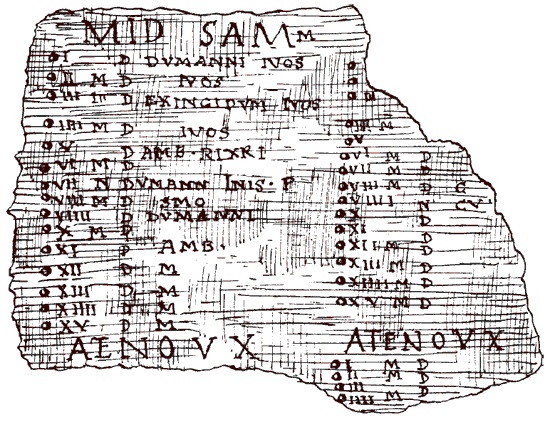 MID SAMM
I D DVMANNI IVOS
II M D IVOS
III III D EXINGIDVM IVOS
IIII M D IVOS
V D AMB·RIXRI
VI M D
VII N DVMANN INIS·F
VIIII M D SMO
VIIII D DVMANNI
X M D
XI D AMB·
XII D M
XIII D M
XIIII D M
XV D M
ATENOVX
N
IIII M
V
VI M D
VII M D
VIII M D G
VIIII N CV
X D
XI D
XII M D
XIII M D
XIIII M D
XV M D
ATENOVX
I M D
II M D
III D
IIII M D